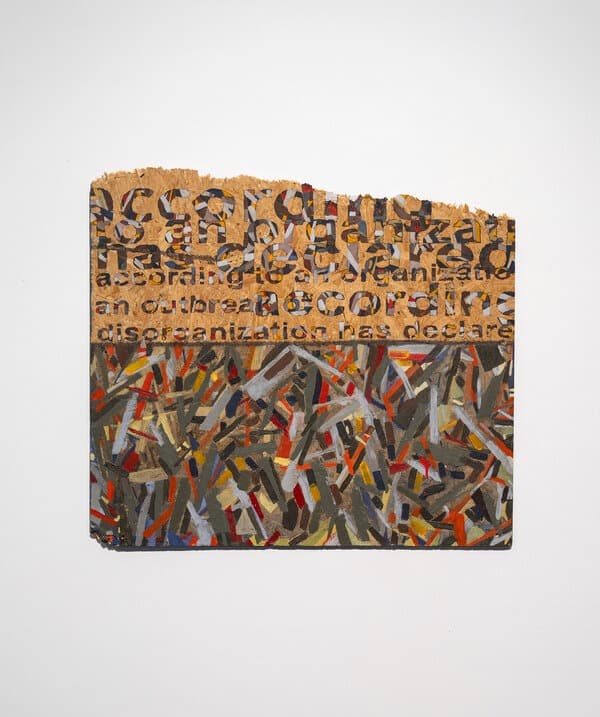 according
to an organizati
has declared
according to an organizatio
an outbreak o according
disorganization has declare